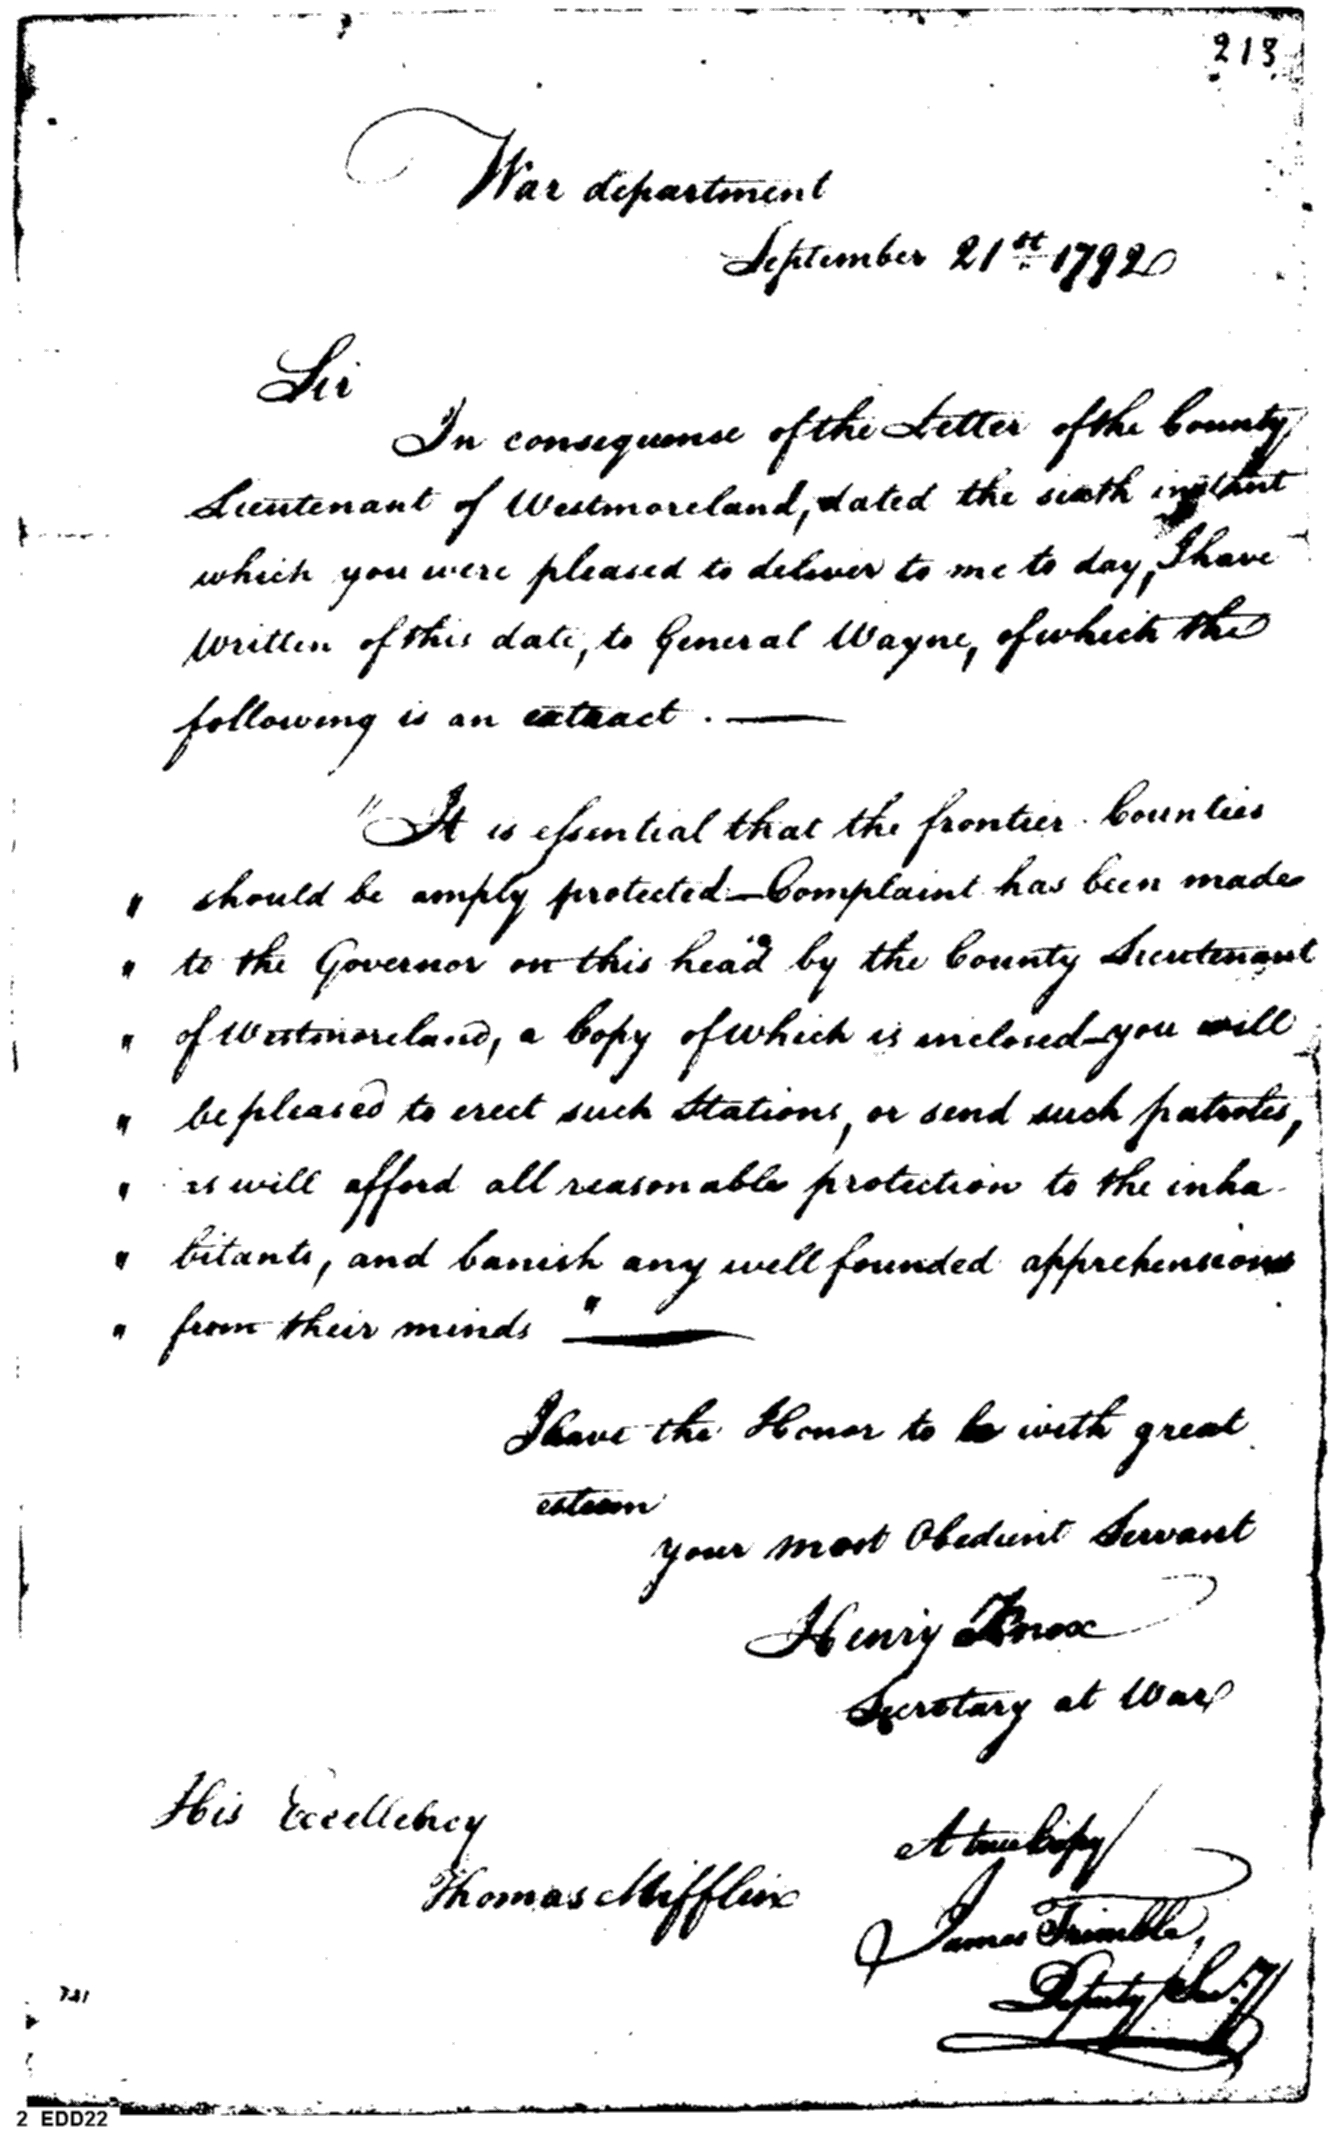 213
War department
September 21st 1792
Sir
In consequense of the Letter of the County
Lieutenant of Westmoreland, dated the sixth instant
which you were pleased to deliver to me to day, I have
written of this date, to General Wayne, of which the
following is an extract. —
"It is essential that the frontier Counties
" should be amply protected — Complaint has been made
" to the Governor on this head by the County Lieutenant
" of Westmoreland, a Copy of which is inclosed — you will
" be pleased to erect such Stations, or send such patroles,
" as will afford all reasonable protection to the inha-
" bitants, and banish any well founded apprehensions
" from their minds " —
I have the Honor to be with great
esteem
your most Obedient Servant
Henry Knox
Secretary at War
His Excellency
Thomas Mifflin
A true Copy
James Trimble,
Deputy Secy
781
2 EDD22